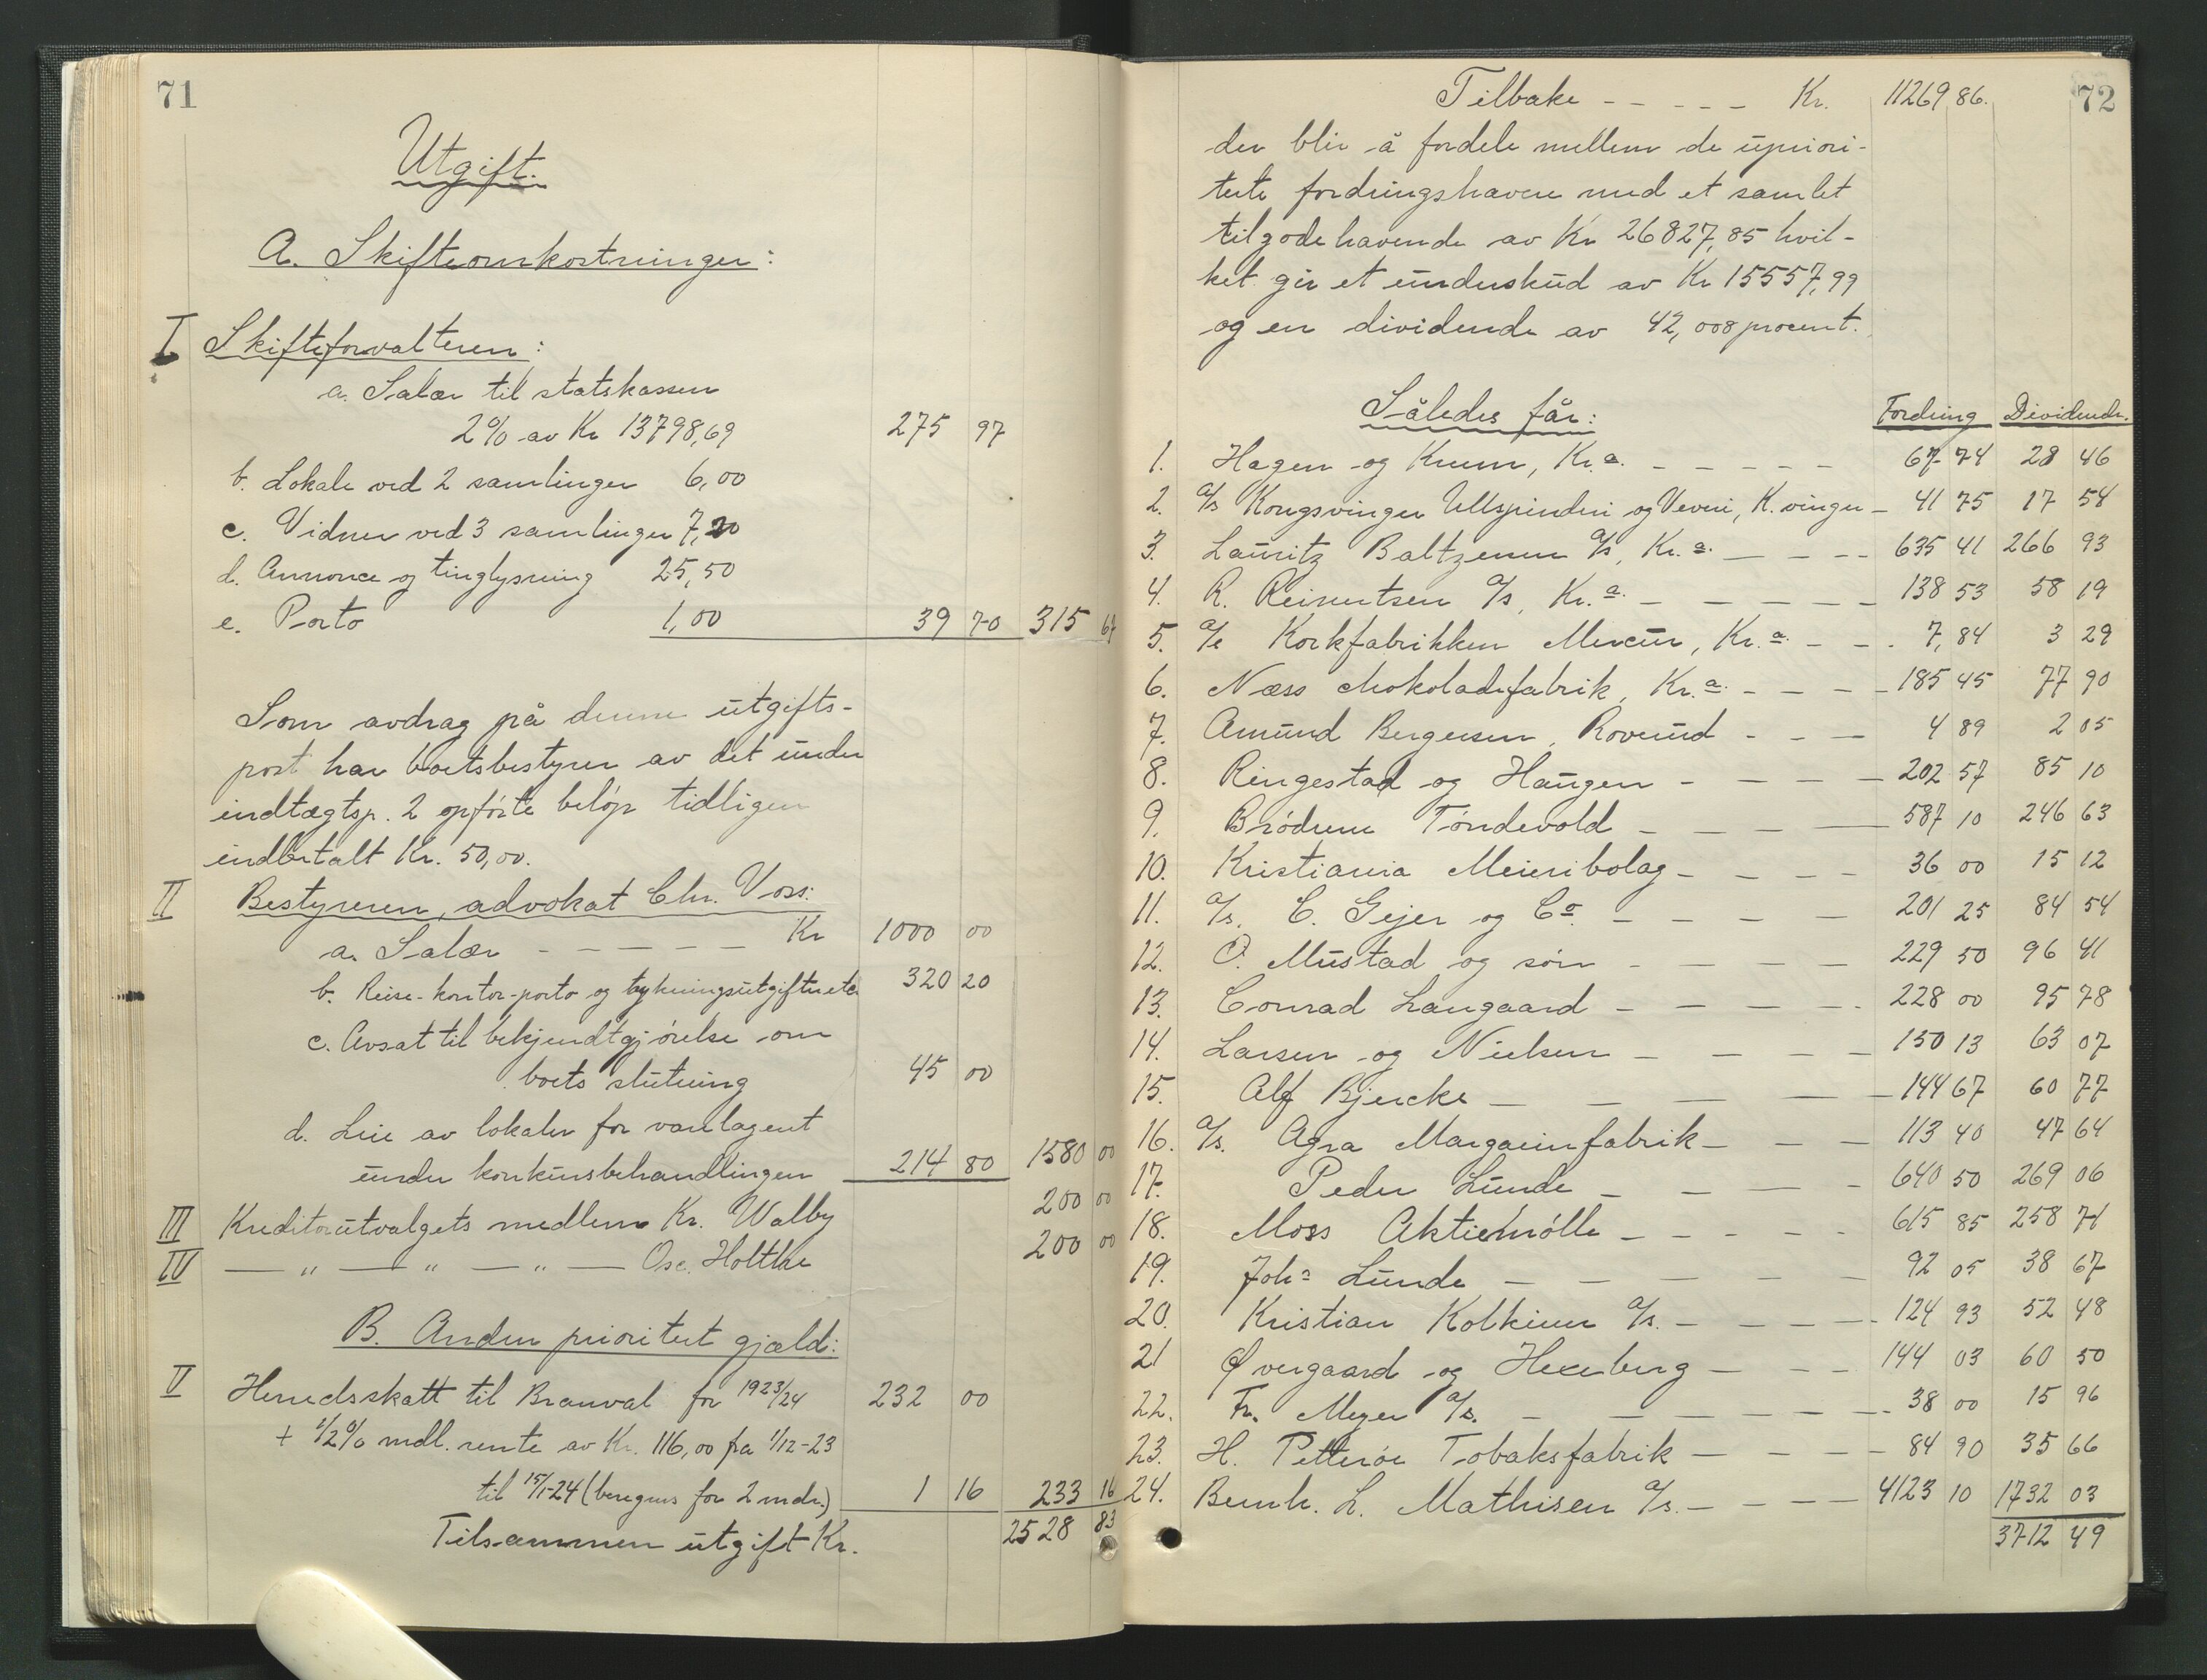 71
Utgift.
A. Skifteomkostninger:
I Skifteforvalteren:
a. Salær til statskassen
2% av Kr 13798,69 275 97
b. Lokale ved 2 samlinger 6,00
c. Vidner ved 3 samlinger 7,20
d. Annonce og tinglysning 25,50
e. Porto 1,00 39 70 315 67
Som avdrag på denne utgifts-
post har boetsbestyrer av det under
indtægtsp. 2 opförte belöp tidligere
indbetalt Kr. 50,00.
II Bestyreren, advokat Chr. Voss:
a. Salær - - - - - - Kr 1000 00
b. Reise-kontor-porto og trykningsutgifter etc 320 20
c. Avsat til bekjendtgjörelse om
boets slutning 45 00
d. Leie av lokaler for varelageret
under konkursbehandlingen 214 80 1580 00
III Kreditorutvalgets medlem Kr. Walby 200 00
IV — " — " — " — Osc. Holthe 200 00
B. Anden prioritert gjæld:
V Herredsskatt til Brandval for 1923/24 232 00
+ 1/2% mdl. rente av Kr. 116,00 fra 1/12-23
til 15/1-24 (beregnes for 2 mdr.) 1 16 233 16
Tilsammen utgift Kr. 2528 83
72
Tilbake - - - - - Kr. 11269 86.
der blir å fordele mellem de upriori-
terte fordringshavere med et samlet
tilgodehavende av Kr 26827,85 hvil-
ket gir et underskud av Kr 15557,99
og en dividende av 42,008 procent.
Således får: Fordring Dividende.
1. Hagen og Krum, Kr.a. - - - - - 67 74 28 46
2. A/s Kongsvinger Uldspinderi og Veveri, K.vinger - 41 75 17 54
3. Lauritz Baltzersen A/s, Kr.a. - - - - 635 41 266 93
4. R. Reinertsen A/s, Kr.a. - - - - - 138 53 58 19
5. A/s Korkfabrikken Mercur, Kr.a. - - - 7,84 3 29
6. Næss chokoladefabrik, Kr.a. - - - - 185 45 77 90
7. Amund Bergersen, Roverud - - - 4 89 2 05
8. Ringestad og Haugen - - - - - 202 57 85 10
9. Brödrene Töndevold - - - - 587 10 246 63
10. Kristiania Meieribolag - - - - 36 00 15 12
11. A/s. C. Gejer og Co. - - - - 201 25 84 54
12. O. Mustad og sön - - - - 229 50 96 41
13. Conrad Langaard - - - - - 228 00 95 78
14. Larsen og Nielsen - - - - 150 13 63 07
15. Alf Bjercke - - - - - 144 67 60 77
16. A/s. Agra Margarinfabrik - - - 113 40 47 64
17. Peder Lunde - - - - 640 50 269 06
18. Moss Aktiemölle - - - - - 615 85 258 71
19. Johs Lunde - - - - - 92 05 38 67
20. Kristian Kolkinn A/s. - - - - 124 93 52 48
21 Övergaard og Hexeberg - - - 144 03 60 50
22. Fr. Meyer A/s. - - - - - 38 00 15 96
23. H. Petterøe Tobaksfabrik - - - - 84 90 35 66
24. Bernh. L. Mathisen A/s. - - - - 4123 10 1732 03
3712 49